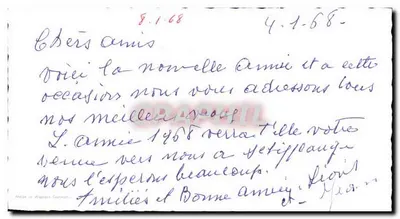 8.1.68
4.1.68-
Chers amis
voici la nouvelle année et a cette
occasion nous vous adressons tous
nos meilleurs voeux
L'année 1968 verra t'elle votre
venue vers nous a
nous l'esperons beaucoup.
Amitiés et Bonne année
et